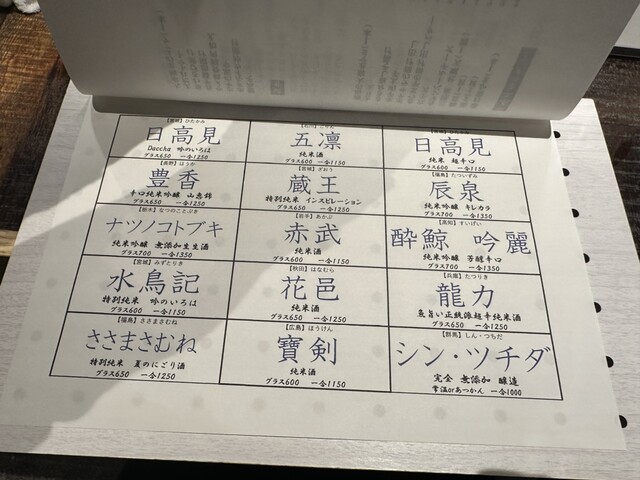 【宮城】ひたかみ
日高見
Daccha 吟のいろは
グラス650 一合1250
五凛
純米酒
グラス600 一合1150
日高見
純米 超辛口
グラス600 一合1150
【長野】ほうか
豊香
辛口純米吟醸 山恵錦
グラス650 一合1250
【宮城】ざおう
蔵王
特別純米 インスピレーション
グラス650 一合1250
【福島】たついずみ
辰泉
純米吟醸 キレカラ
グラス700 一合1350
【栃木】なつのことぶき
ナツノコトブキ
純米吟醸 無添加生生酒
グラス700 一合1350
【岩手】あかぶ
赤武
純米酒
グラス600 一合1150
【高知】すいげい
酔鯨 吟麗
純米吟醸 芳醇辛口
グラス700 一合1350
【宮城】みずとりき
水鳥記
特別純米 吟のいろは
グラス650 一合1250
【秋田】はなむら
花邑
純米酒
グラス650 一合1250
【兵庫】たつりき
龍力
魚旨い正統派超辛純米酒
グラス650 一合1250
【福島】ささまさむね
ささまさむね
特別純米 夏のにごり酒
グラス650 一合1250
【広島】ほうけん
寶剣
純米酒
グラス600 一合1150
【群馬】しん・つちだ
シン・ツチダ
完全 無添加 醸造
常温orあつかん 一合1000